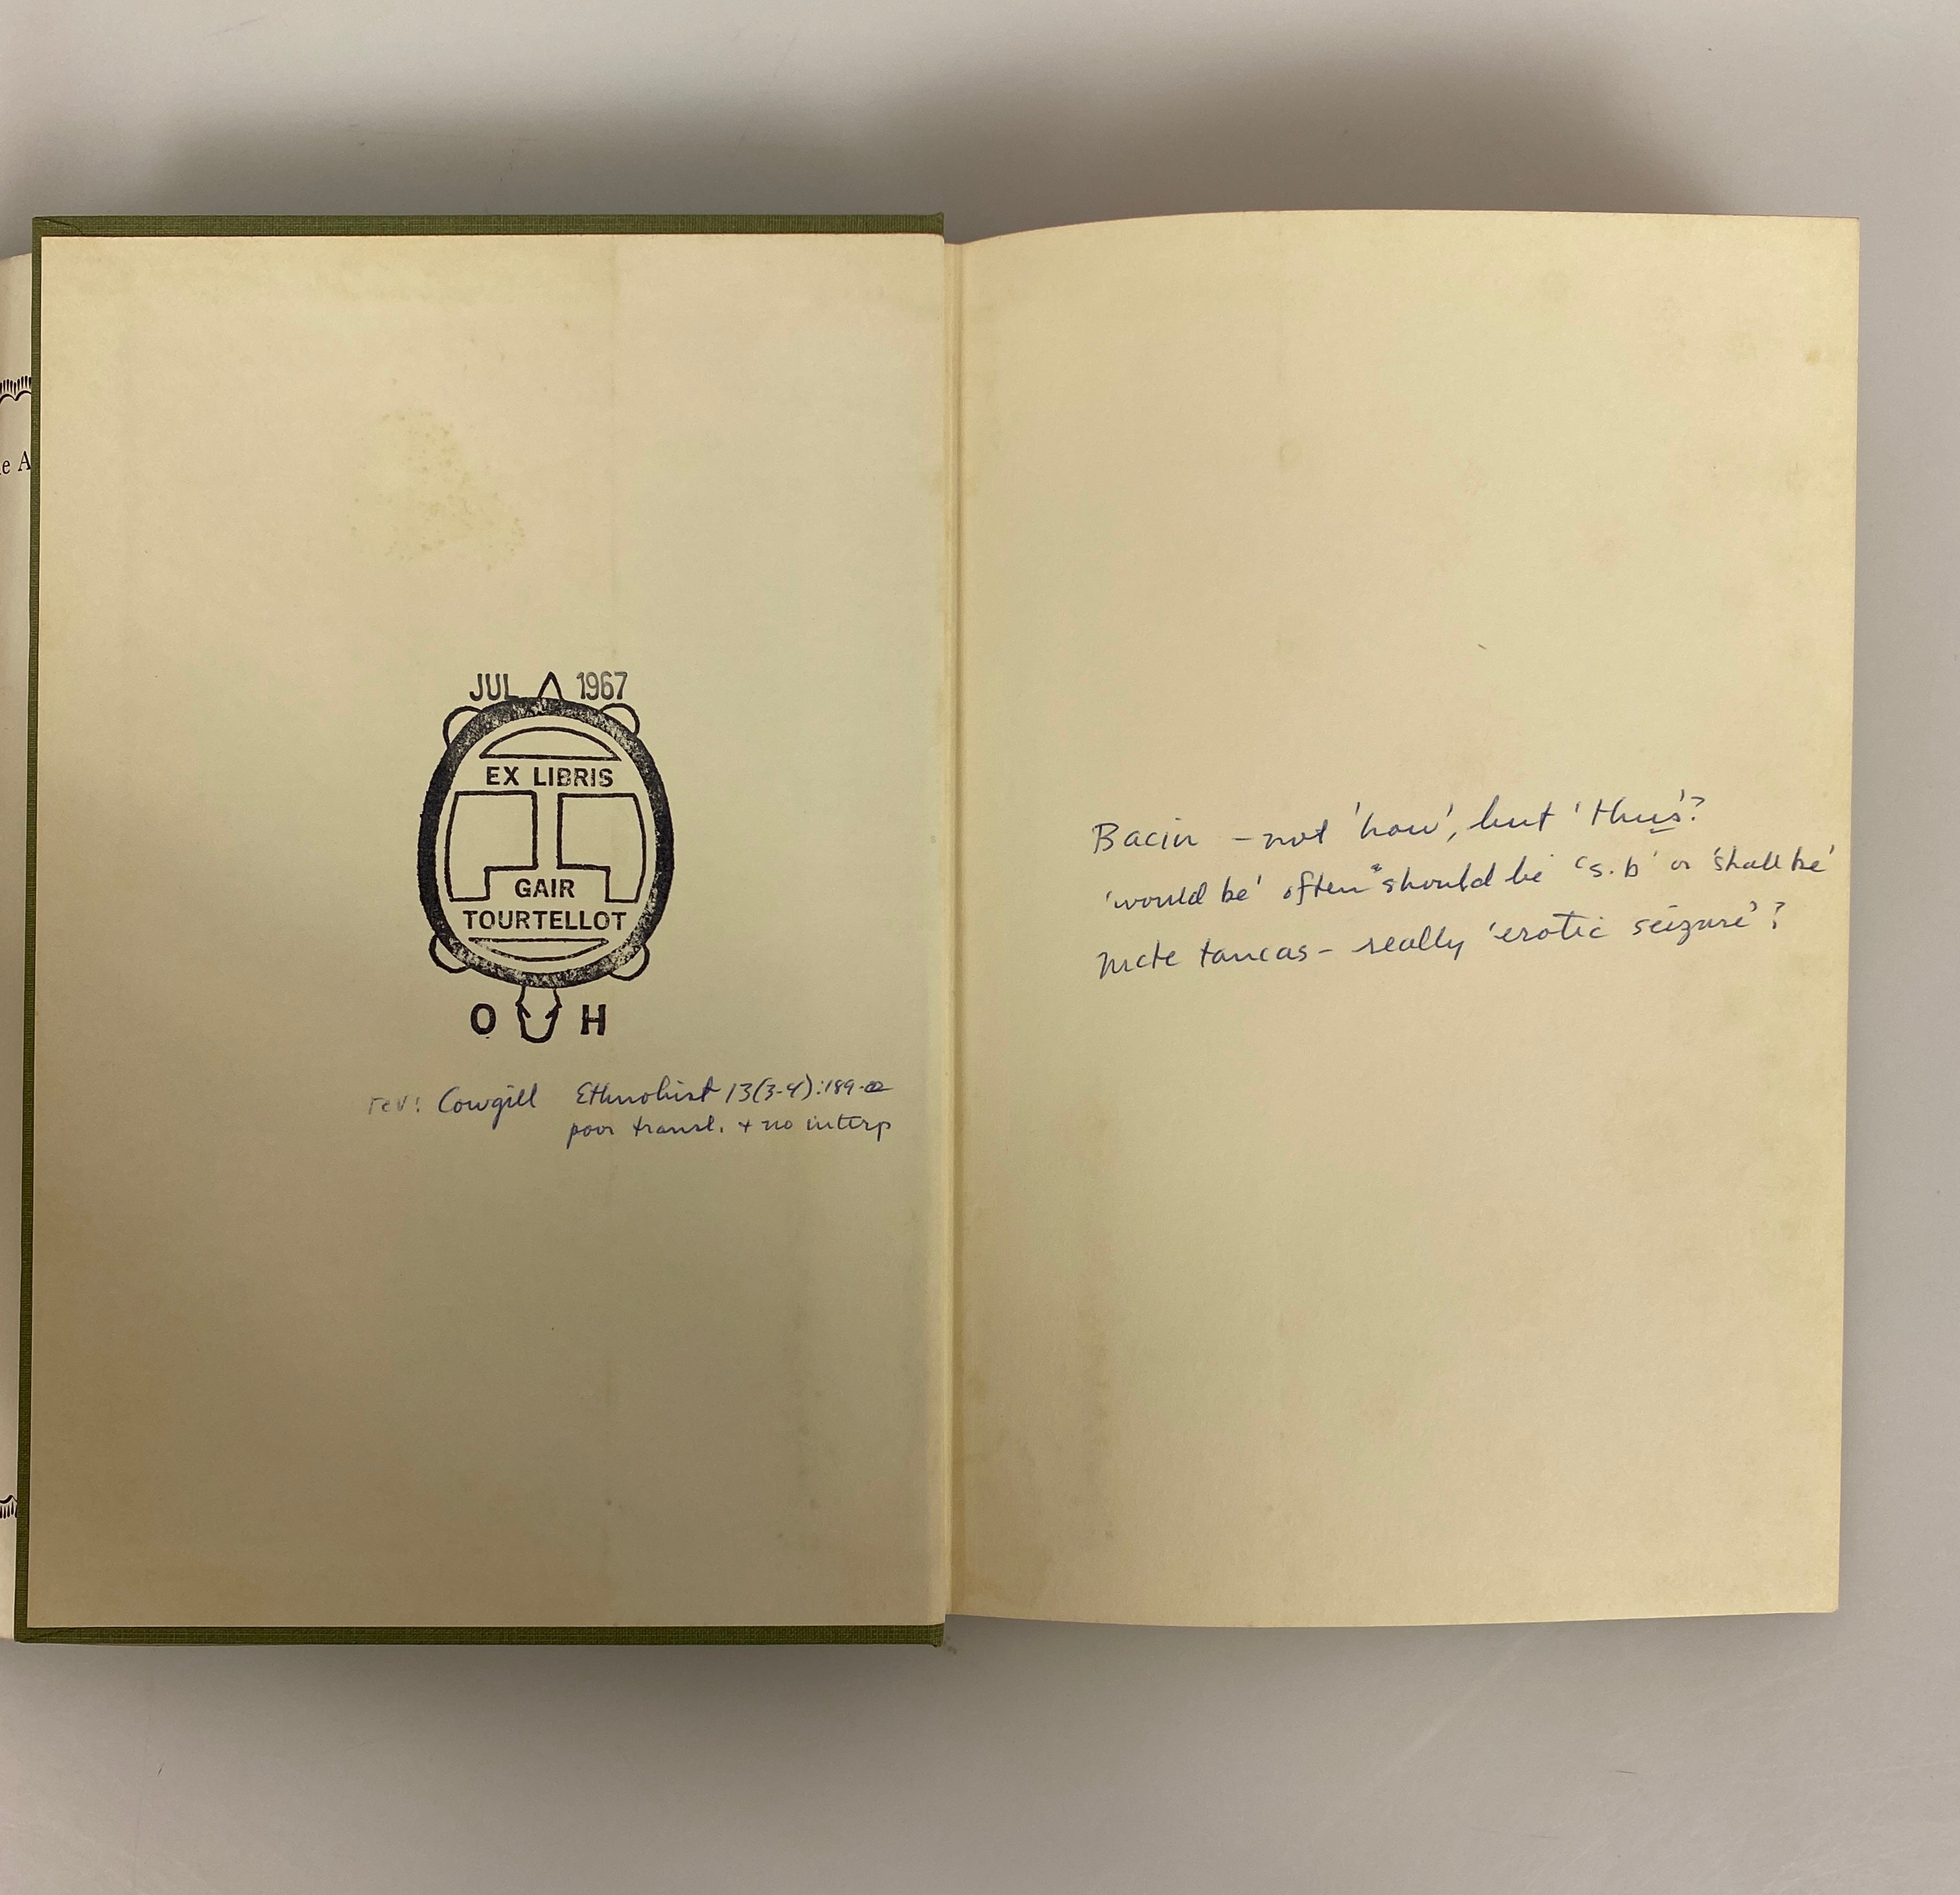 e A
JUL 1967
EX LIBRIS
GAIR
TOURTELLOT
O H
rev: Cowgill Ethnohist 13(3-4):189-
poor transl. + no interp
Bacin - not 'how', but 'thus'?
'would be' often should be 's.b' or 'shall be'
nicte tancas - really 'erotic seizure'?